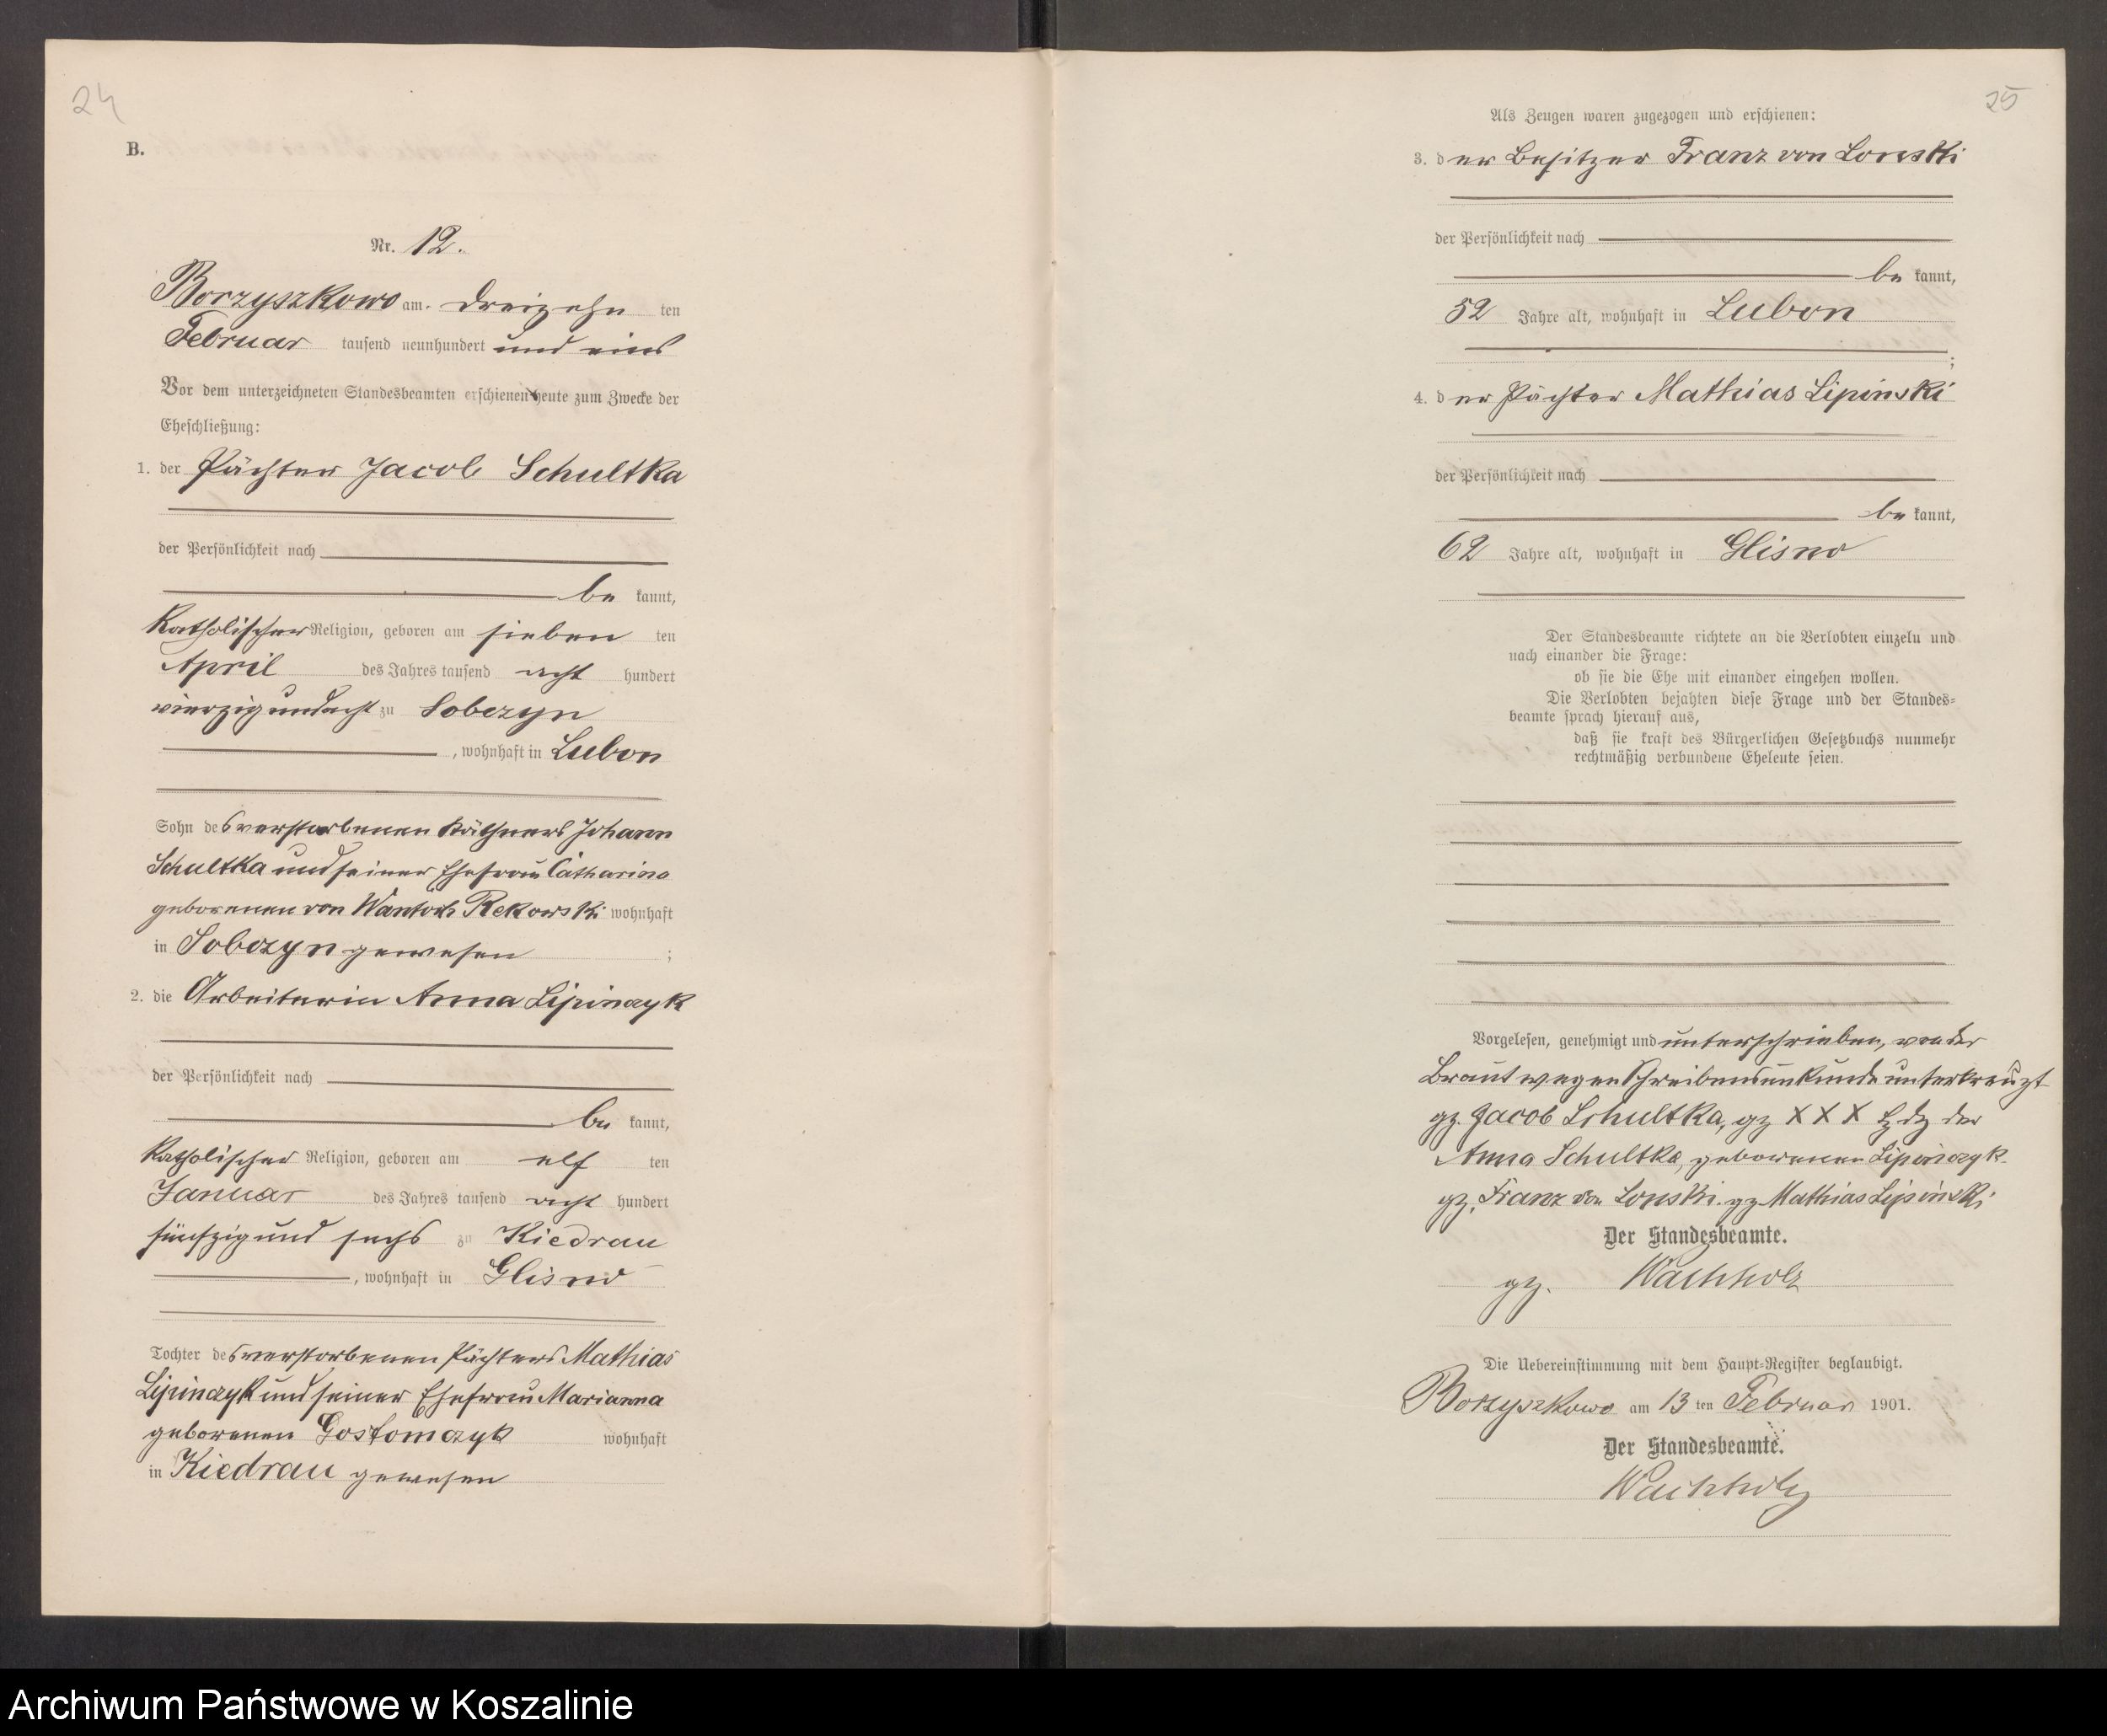 24
B.
Nr. 12.
Borzyszkowo am dreizehn ten
Februar tausend neunhundert und eins
Vor dem unterzeichneten Standesbeamten erschienen heute zum Zwecke der
Eheschließung:
1. der Pächter Jacob Schultka
der Persönlichkeit nach
be kannt,
katholischer Religion, geboren am sieben ten
April des Jahres tausend acht hundert
vierzig und acht zu Sobczyn
, wohnhaft in Lubon
Sohn des verstorbenen Käthners Johann
Schultka und seiner Ehefrau Catharina
geborenen von Wantoch Rekowski wohnhaft
in Sobczyn gewesen ;
2. die Arbeiterin Anna Lipinczyk
der Persönlichkeit nach
be kannt,
katholischer Religion, geboren am elf ten
Januar des Jahres tausend acht hundert
fünfzig und sechs zu Kiedrau
, wohnhaft in Glisno
Tochter des verstorbenen Pächters Mathias
Lipinczyk und seiner Ehefrau Marianna
geborenen Gostomczyk wohnhaft
in Kiedrau gewesen
25
Als Zeugen waren zugezogen und erschienen:
3. der Besitzer Franz von Lonski
der Persönlichkeit nach
be kannt,
52 Jahre alt, wohnhaft in Lubon
;
4. der Pächter Mathias Lipinski
der Persönlichkeit nach
be kannt,
62 Jahre alt, wohnhaft in Glisno
Der Standesbeamte richtete an die Verlobten einzeln und
nach einander die Frage:
ob sie die Ehe mit einander eingehen wollen.
Die Verlobten bejahten diese Frage und der Standes-
beamte sprach hierauf aus,
daß sie kraft des Bürgerlichen Gesetzbuchs nunmehr
rechtmäßig verbundene Eheleute seien.
Vorgelesen, genehmigt und unterschrieben, von der
Braut wegen Schreibensunkunde unterkreuzt
gz. Jacob Schultka, gz X X X Hdz der
Anna Schultka, geborenen Lipinczyk.
gz. Franz von Lonski. gz Mathias Lipinski
Der Standesbeamte.
gz. Wachholz
Die Uebereinstimmung mit dem Haupt-Register beglaubigt.
Borzyszkowo am 13 ten Februar 1901.
Der Standesbeamte.
Wachholz
Archiwum Państwowe w Koszalinie